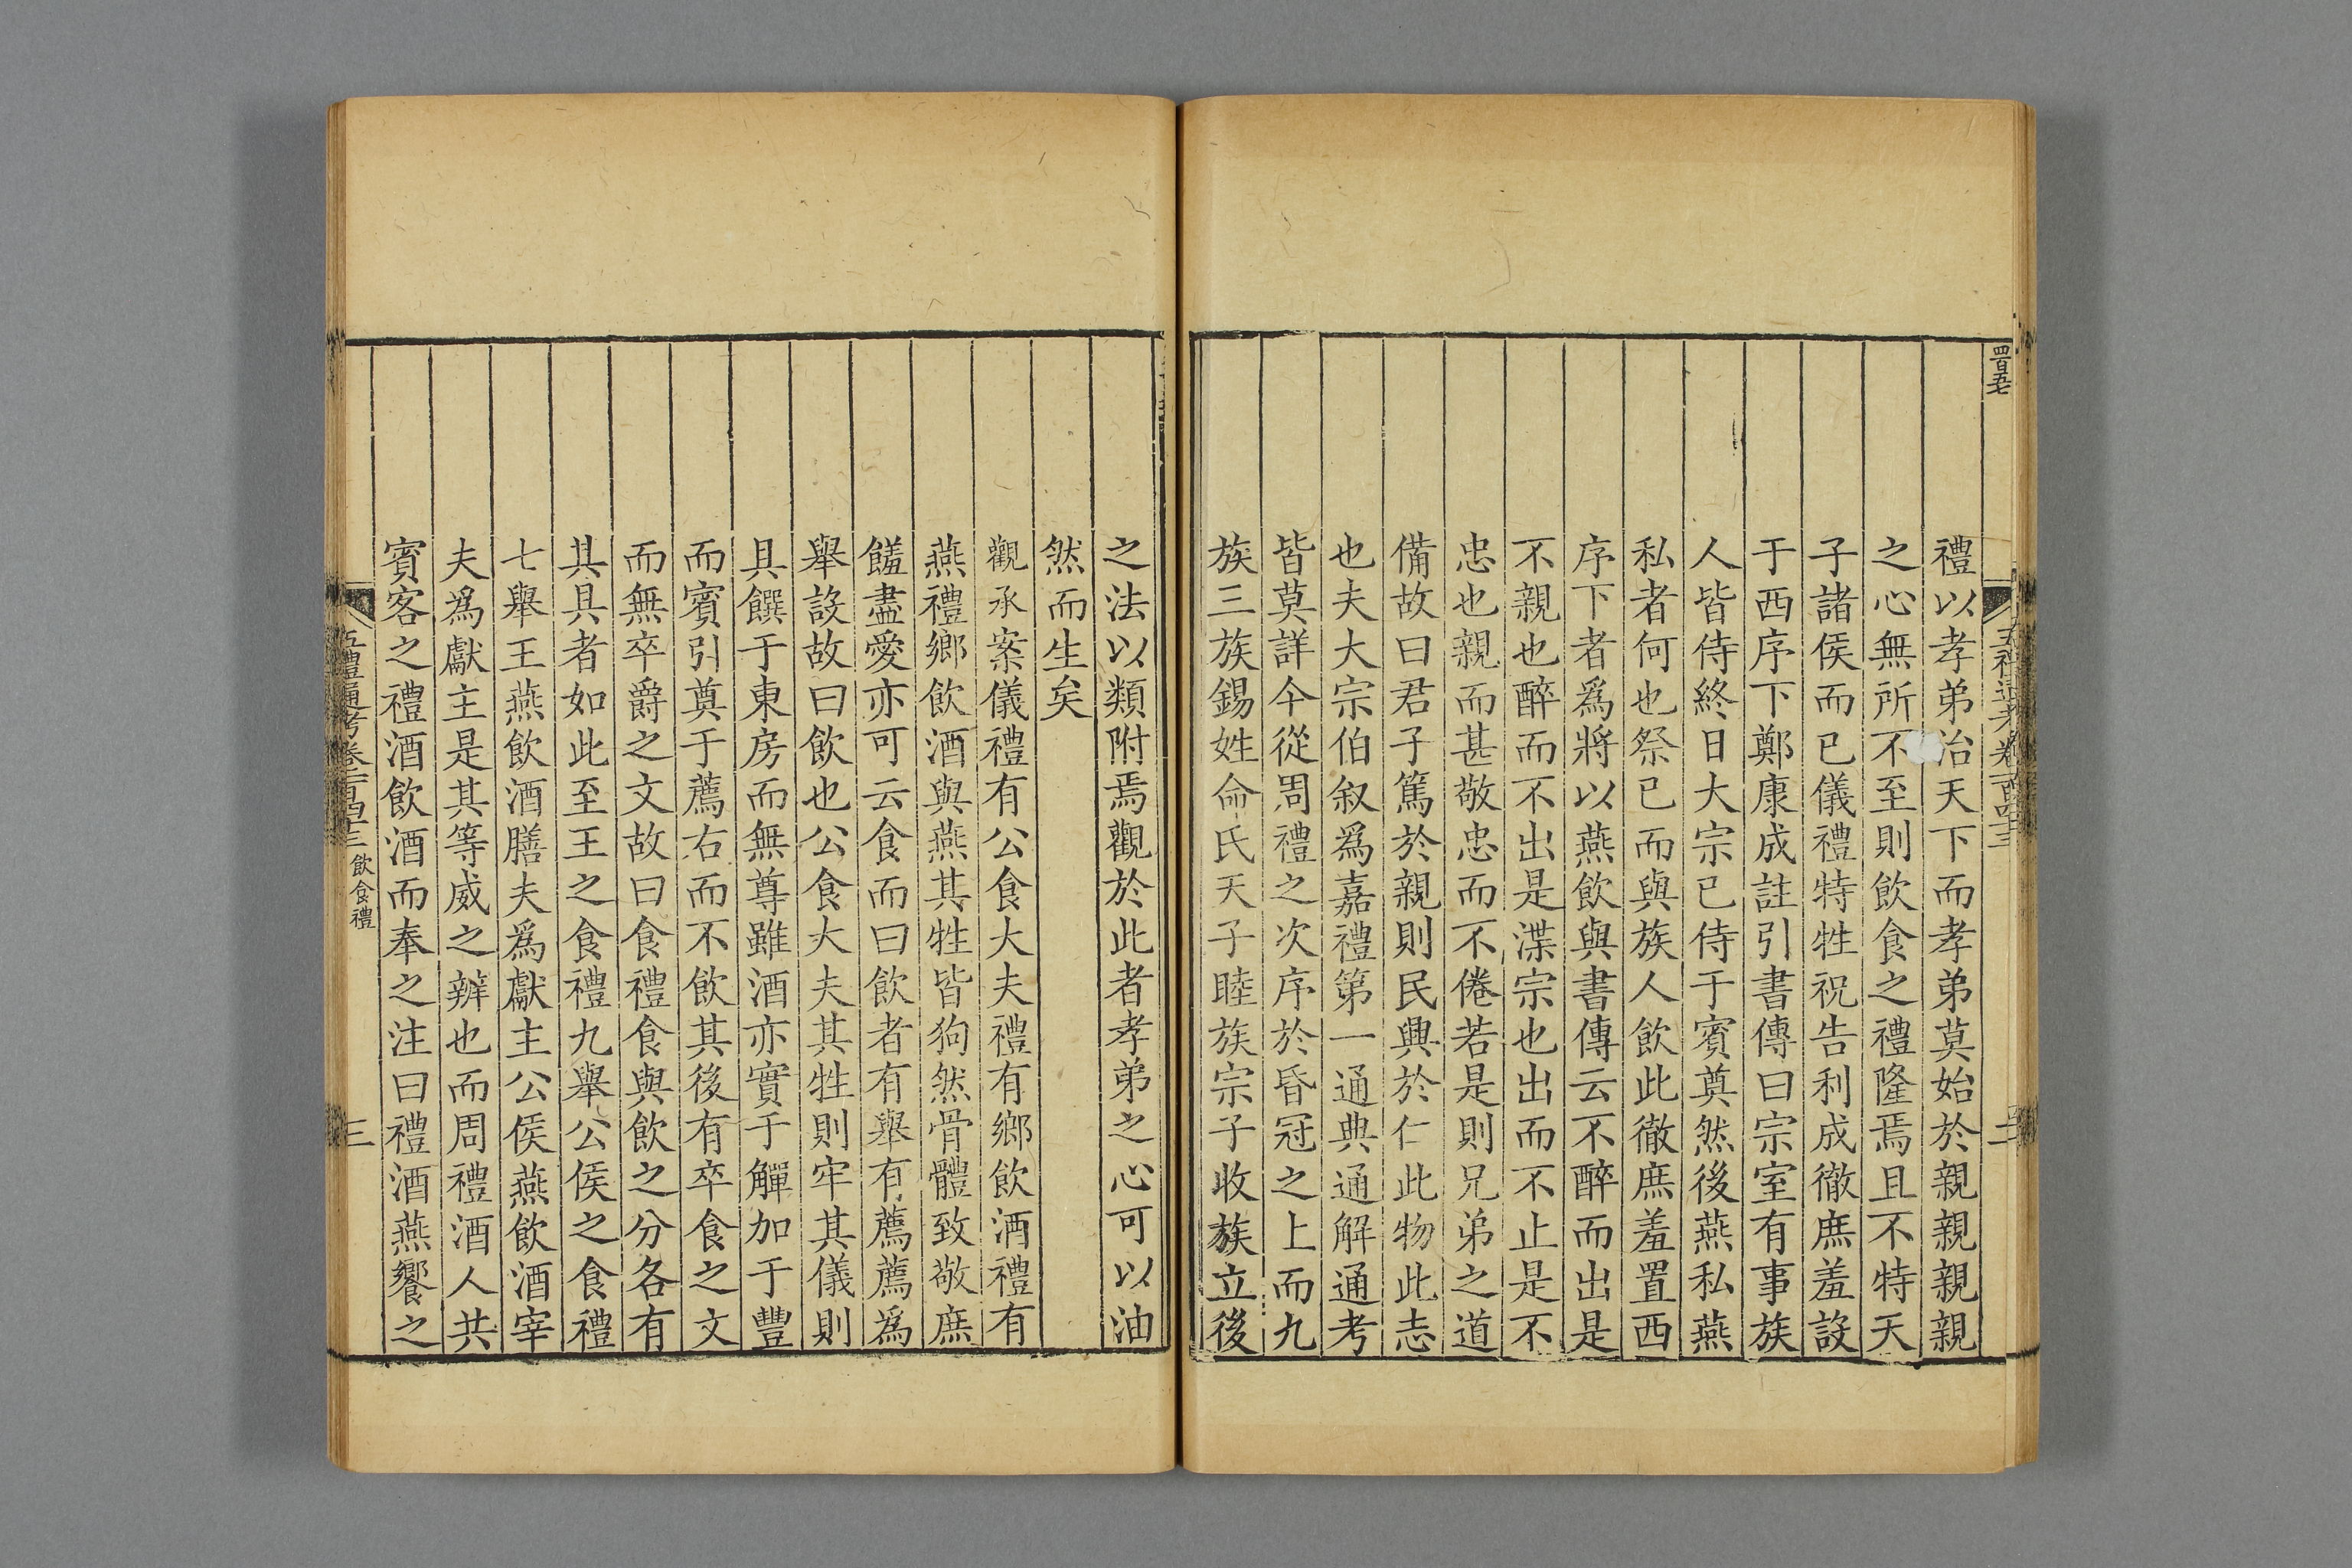 四百五七
禮以孝弟治天下而孝弟莫始於親親親親
之心無所不至則飲食之禮隆焉且不特天
子諸侯而已儀禮特牲祝告利成徹庶羞設
于西序下鄭康成註引書傳曰宗室有事族
人皆侍終日大宗已侍于賓奠然後燕私燕
私者何也祭已而與族人飲此徹庶羞置西
序下者爲將以燕飲與書傳云不醉而出是
不親也醉而不出是渫宗也出而不止是不
忠也親而甚敬忠而不倦若是則兄弟之道
備故曰君子篤於親則民興於仁此物此志
也夫大宗伯叙爲嘉禮第一通典通解通考
皆莫詳今從周禮之次序於昏冠之上而九
族三族錫姓命氏天子睦族宗子收族立後
之法以類附焉觀於此者孝弟之心可以油
然而生矣
觀承案儀禮有公食大夫禮有鄉飲酒禮有
燕禮鄉飲酒與燕其牲皆狗然骨體致敬庶
饈盡愛亦可云食而曰飲者有舉有薦薦爲
舉設故曰飲也公食大夫其牲則牢其儀則
具饌于東房而無尊雖酒亦實于觶加于豐
而賓引奠于薦右而不飲其後有卒食之文
而無卒爵之文故曰食禮食與飲之分各有
其具者如此至王之食禮九舉公侯之食禮
七舉王燕飲酒膳夫爲獻主公侯燕飲酒宰
夫爲獻主是其等威之辨也而周禮酒人共
賓客之禮酒飲酒而奉之注曰禮酒燕饗之
五禮通考卷一百四十三 飲食禮
三